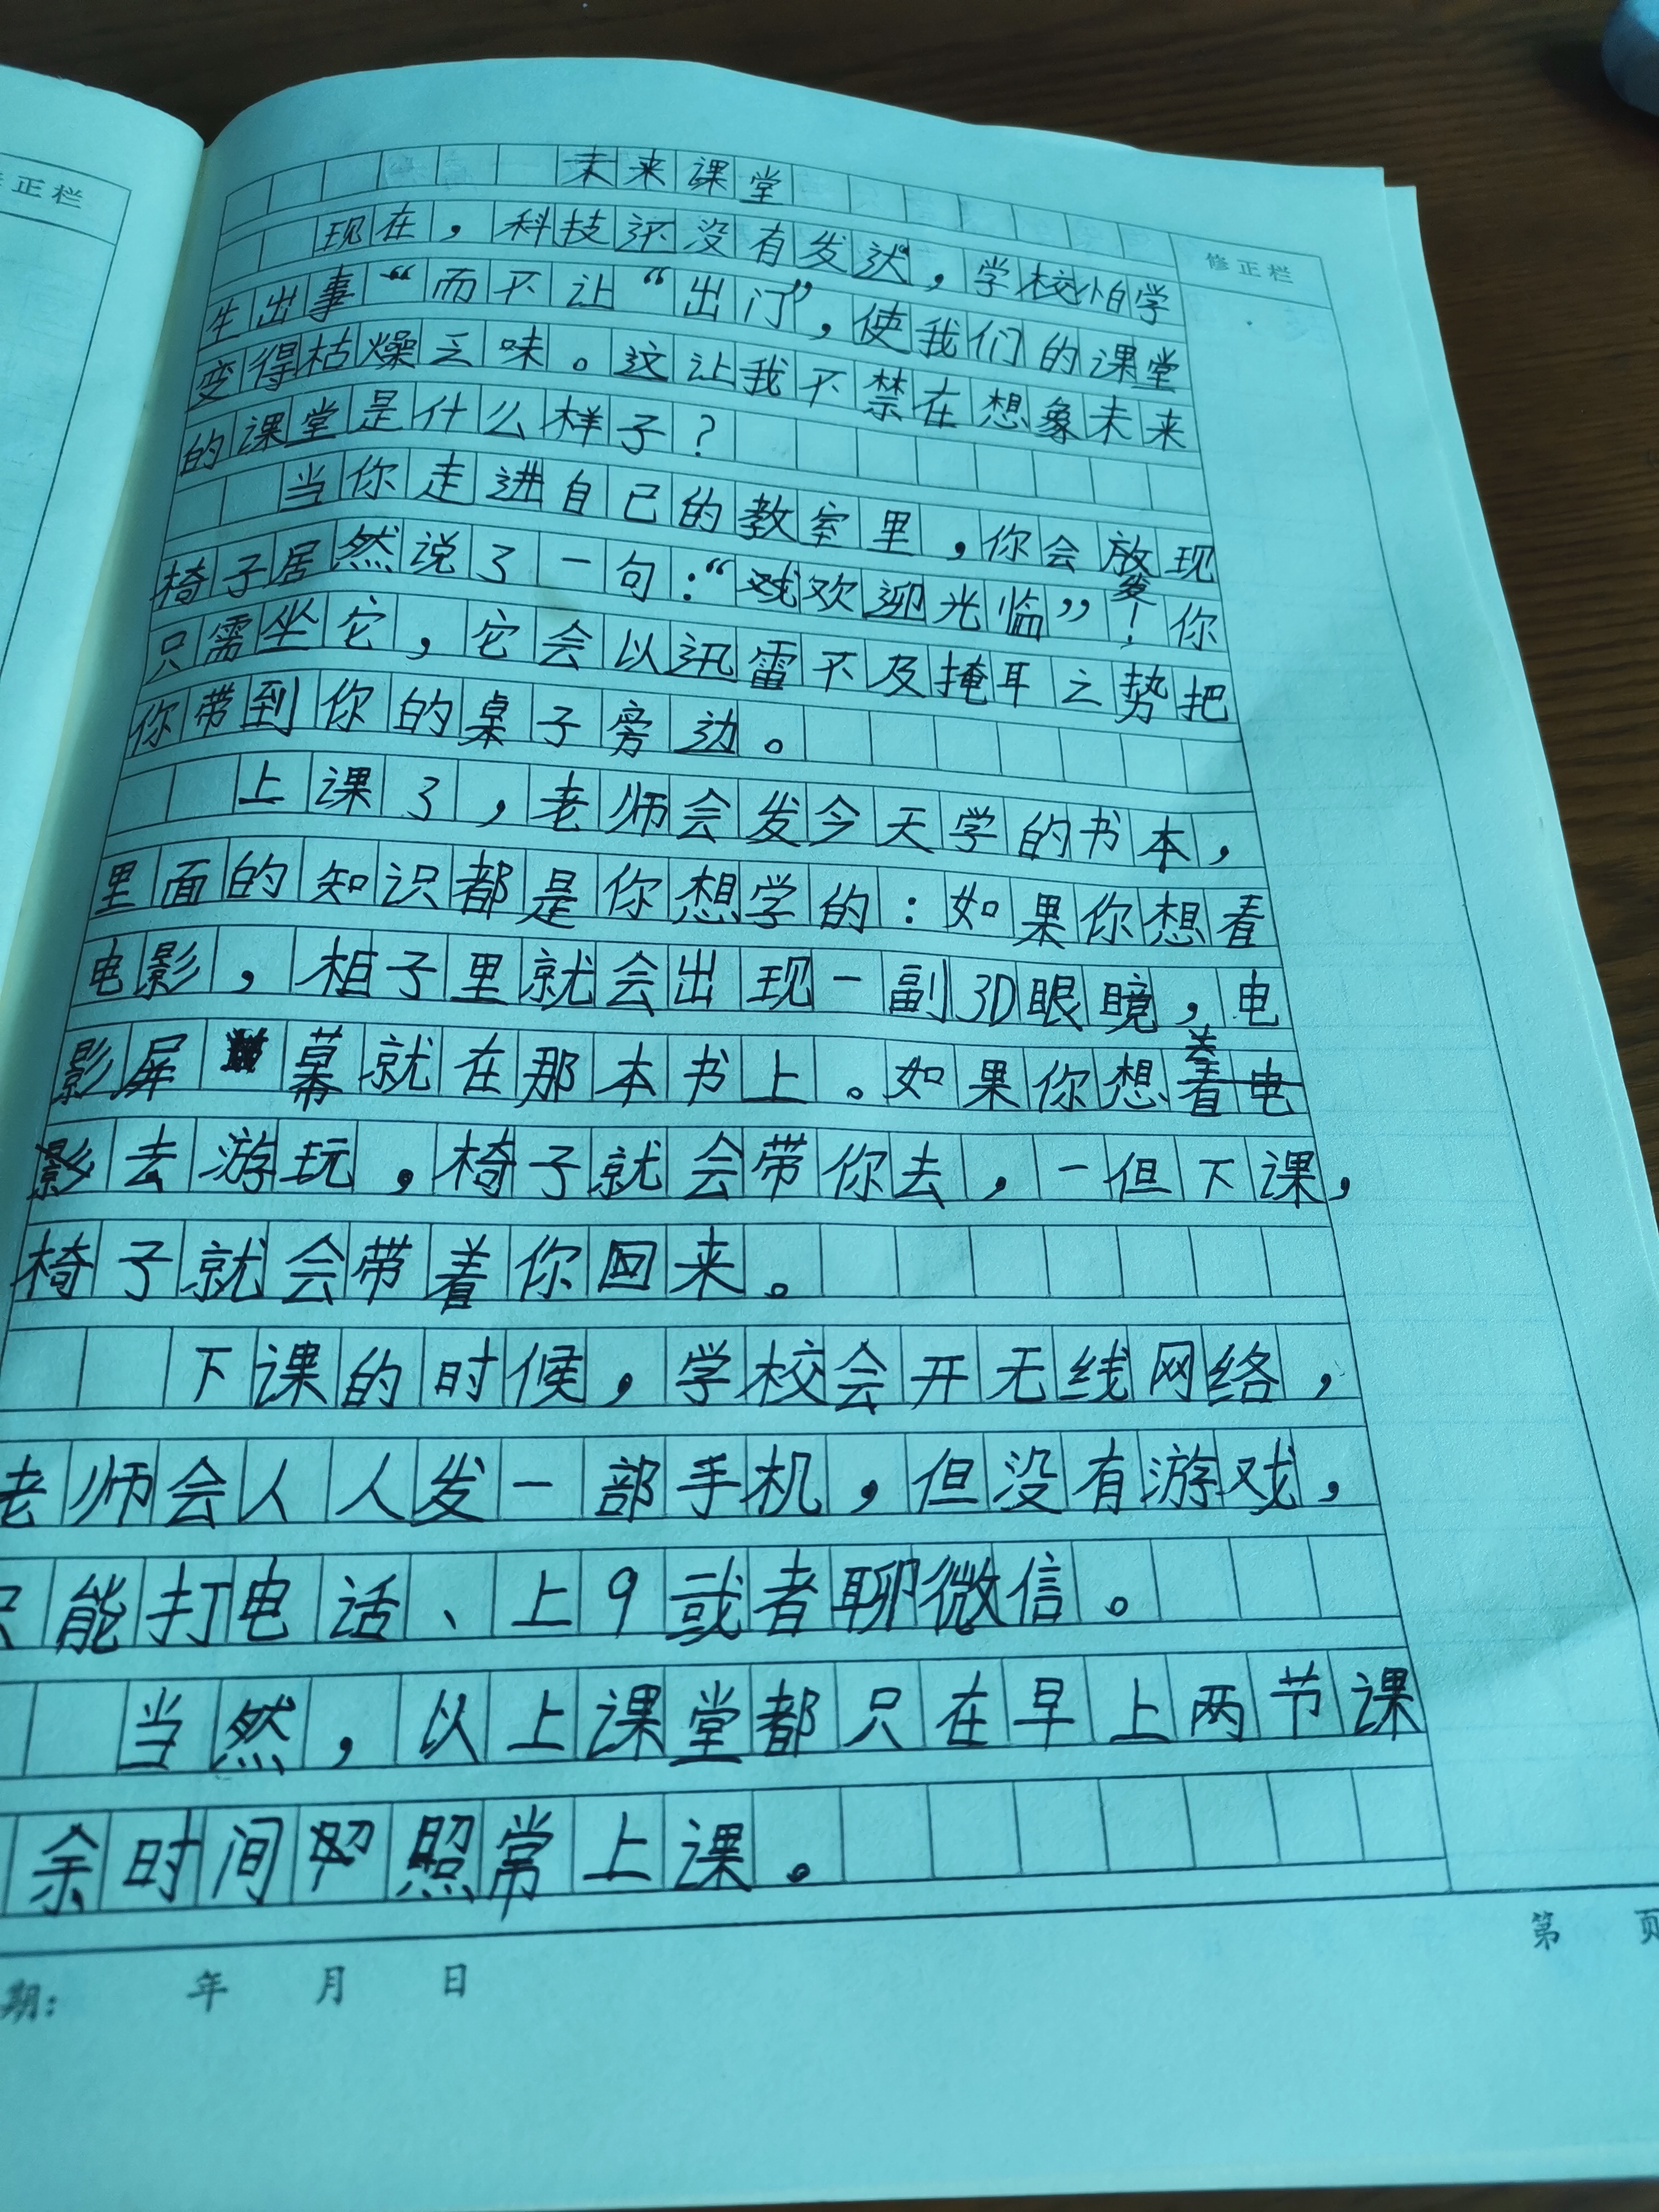 正栏
未来课堂
修正栏
现在，科技还没有发达，学校怕学
生出事“而不让“出门”，使我们的课堂
变得枯燥乏味。这让我不禁在想象未来
的课堂是什么样子？
当你走进自己的教室里，你会发现
椅子居然说了一句：“欢迎光临”！你
只需坐它，它会以迅雷不及掩耳之势把
你带到你的桌子旁边。
上课了，老师会发今天学的书本，
里面的知识都是你想学的：如果你想看
电影，柤子里就会出现一副3D眼镜，电
影屏幕就在那本书上。如果你想
去游玩，椅子就会带你去，一但下课，
椅子就会带着你回来。
下课的时候，学校会开无线网络，
老师会人人发一部手机，但没有游戏，
只能打电话、上9或者聊微信。
当然，以上课堂都只在早上两节课
余时间照常上课。
期：　年　月　日
第　页